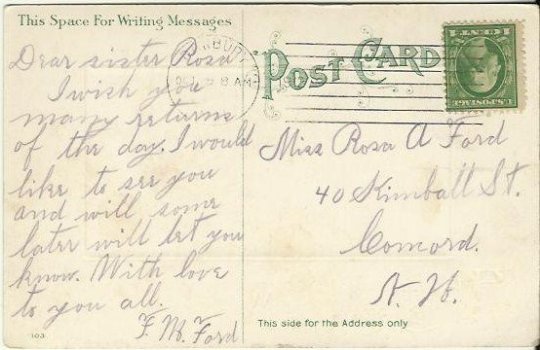 This Space For Writing Messages
Dear sister Rosa
I wish you
many returns
of the day. I would
like to see you
and will some
later will let you
know. With love
to you all.
F. M. Ford
103
POST CARD
8 AM
U.S. POSTAGE
1 CENT 1
Miss Rosa A Ford
40 Kimball St.
Concord.
N. H.
This side for the Address only